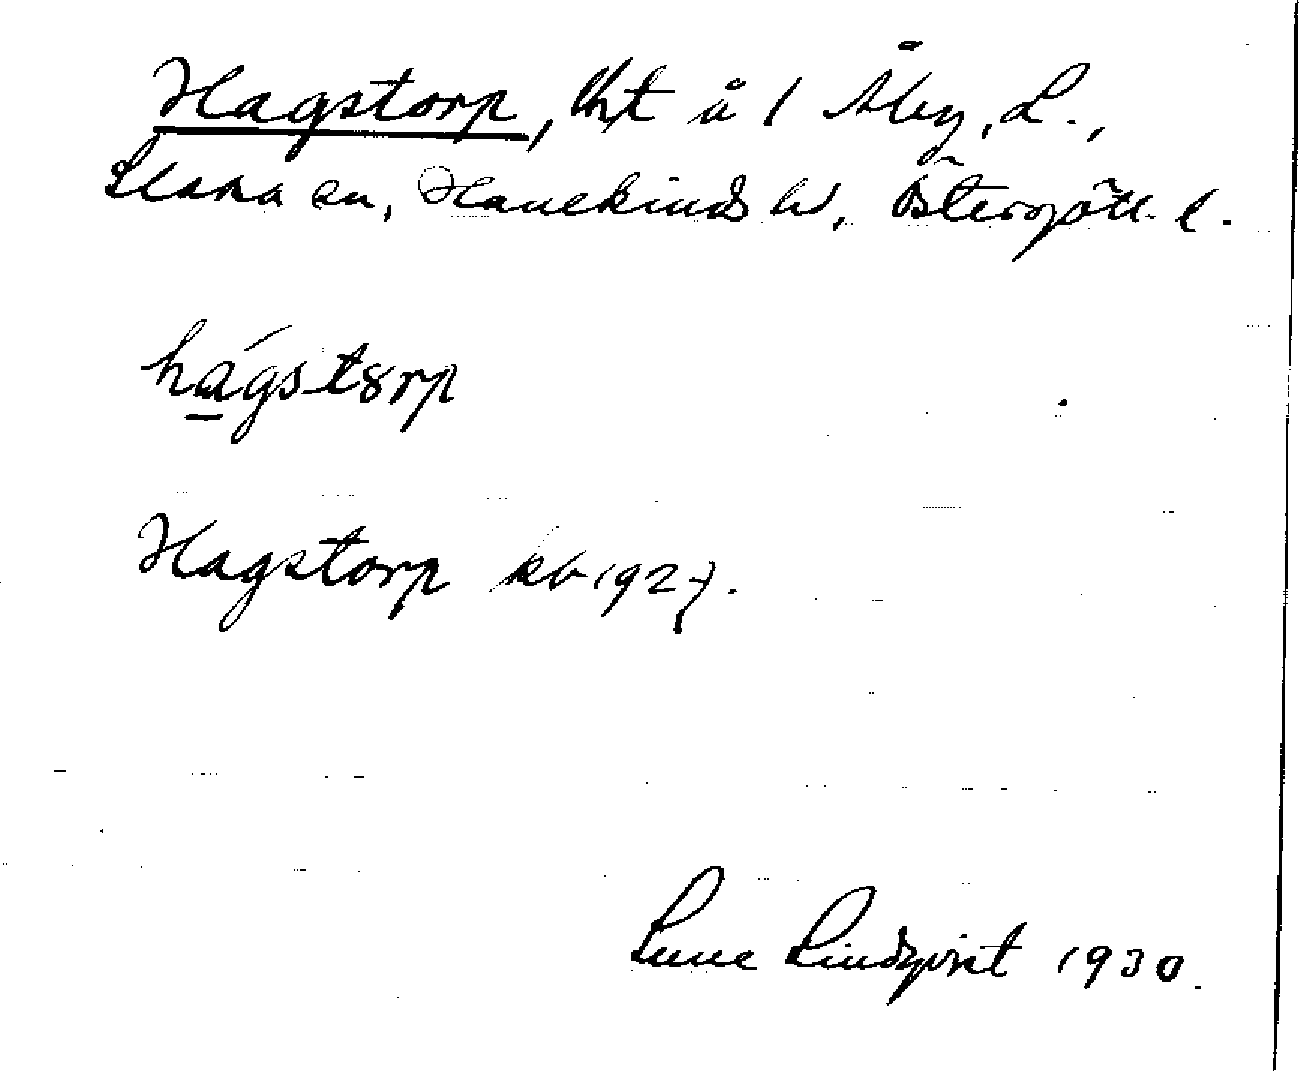 Hagstorp, lht å 1 Åby, L.,
Slaka sn, Hanekinds hd, Östergötl. l.
hágstorp
Hagstorp kb 1927.
Sune Lindqvist 1930.